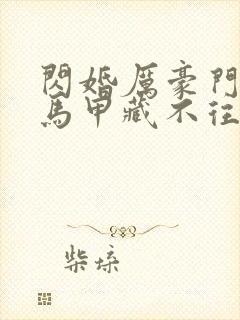 閃婚厲豪門
馬甲藏不往
柴垛